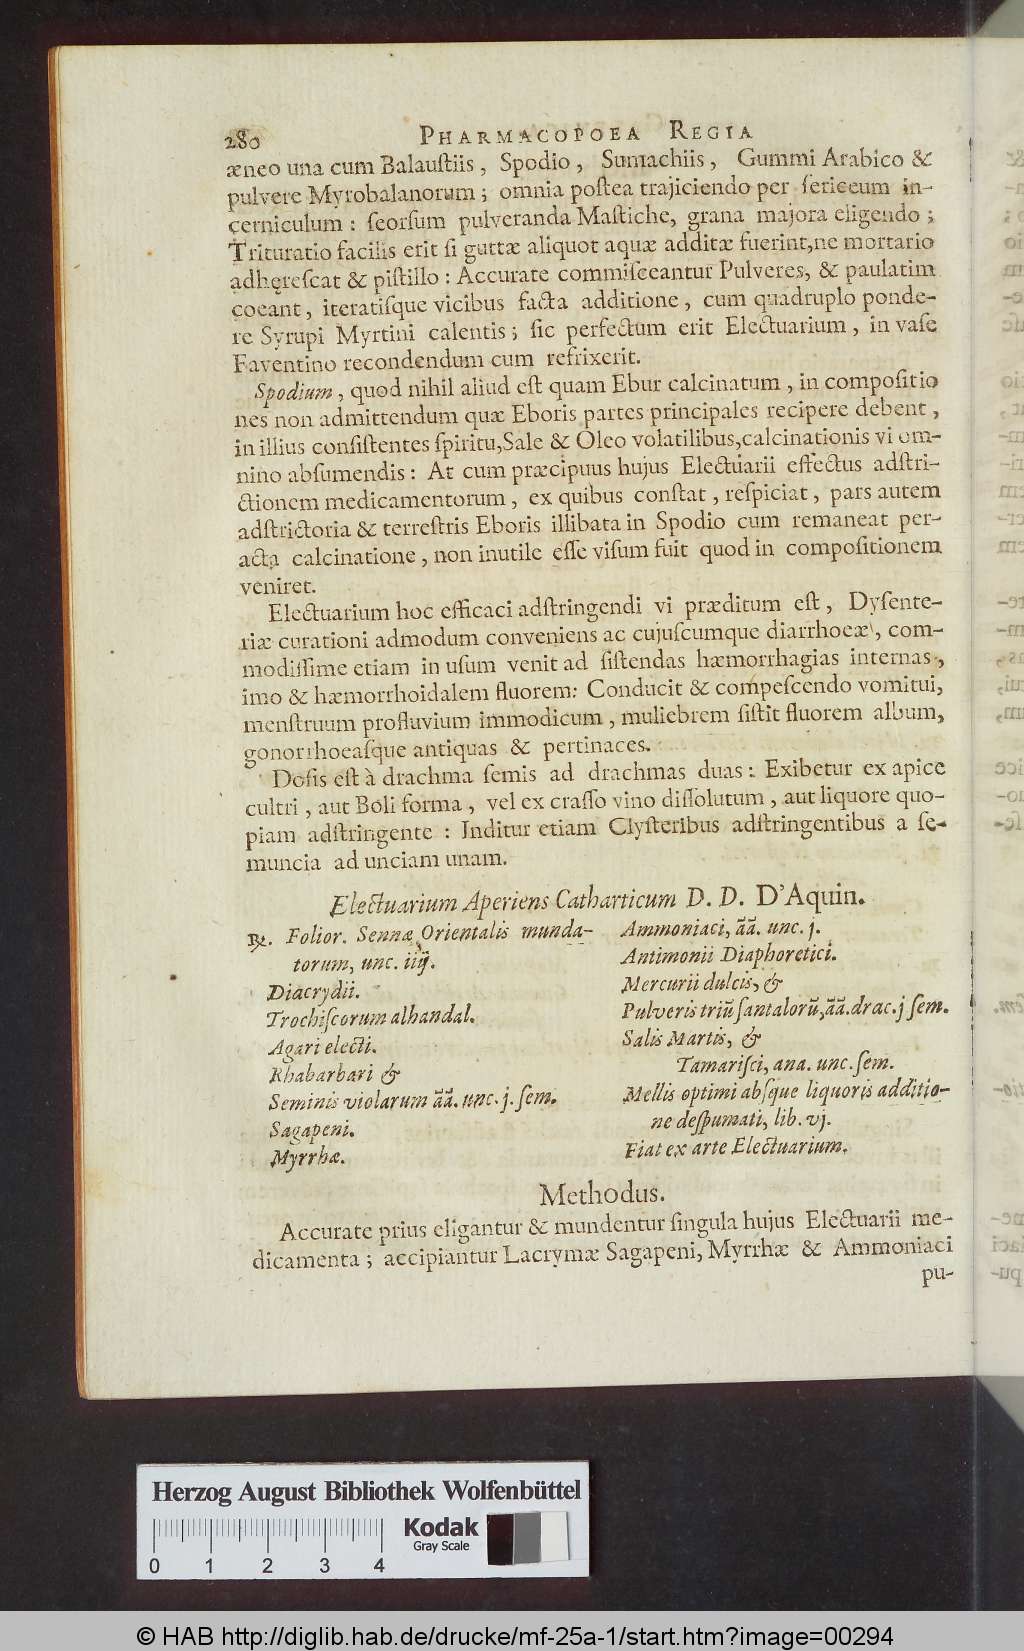 280 PHARMACOPOEA REGIA
æneo una cum Balauſtiis, Spodio, Sumachiis, Gummi Arabico &
pulvere Myrobalanorum; omnia poſtea trajiciendo per ſericeum in-
cerniculum: ſeorſum pulveranda Maſtiche, grana majora eligendo;
Trituratio facilis erit ſi guttæ aliquot aquæ additæ fuerint, ne mortario
adhęreſcat & piſtillo: Accurate commiſceantur Pulveres, & paulatim
coeant, iteratiſque vicibus facta additione, cum quadruplo ponde-
re Syrupi Myrtini calentis; ſic perfectum erit Electuarium, in vaſe
Faventino recondendum cum refrixerit.
Spodium, quod nihil aliud eſt quam Ebur calcinatum, in compoſitio
nes non admittendum quæ Eboris partes principales recipere debent,
in illius conſiſtentes ſpiritu, Sale & Oleo volatilibus, calcinationis vi om-
nino abſumendis: At cum præcipuus hujus Electuarii effectus adſtri-
ctionem medicamentorum, ex quibus conſtat, reſpiciat, pars autem
adſtrictoria & terreſtris Eboris illibata in Spodio cum remaneat per-
acta calcinatione, non inutile eſſe viſum fuit quod in compoſitionem
veniret.
Electuarium hoc efficaci adſtringendi vi præditum eſt, Dyſente-
riæ curationi admodum conveniens ac cujuſcumque diarrhoeæ, com-
modiſſime etiam in uſum venit ad ſiſtendas hæmorrhagias internas,
imo & hæmorrhoidalem fluorem: Conducit & compeſcendo vomitui,
menſtruum profluvium immodicum, muliebrem ſiſtit fluorem album,
gonorrhoeaſque antiquas & pertinaces.
Doſis eſt à drachma ſemis ad drachmas duas: Exibetur ex apice
cultri, aut Boli forma, vel ex craſſo vino diſſolutum, aut liquore quo-
piam adſtringente: Inditur etiam Clyſteribus adſtringentibus a ſe-
muncia ad unciam unam.
Electuarium Aperiens Catharticum D. D. D'Aquin.
℞. Folior. Sennæ Orientalis munda-
torum, unc. iiij.
Diacrydii.
Trochiſcorum alhandal.
Agari electi.
Rhabarbari &
Seminis violarum āā. unc. j. ſem.
Sagapeni.
Myrrhæ.
Ammoniaci, āā. unc. j.
Antimonii Diaphoretici.
Mercurii dulcis, &
Pulveris triū ſantalorū, āā. drac. j ſem.
Salis Martis, &
Tamariſci, ana. unc. ſem.
Mellis optimi abſque liquoris additio-
ne deſpumati, lib. vj.
Fiat ex arte Electuarium.
Methodus.
Accurate prius eligantur & mundentur ſingula hujus Electuarii me-
dicamenta; accipiantur Lacrymæ Sagapeni, Myrrhæ & Ammoniaci
pu-
Herzog August Bibliothek Wolfenbüttel
Kodak
Gray Scale
0 1 2 3 4
© HAB http://diglib.hab.de/drucke/mf-25a-1/start.htm?image=00294